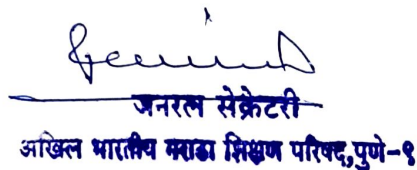 जनरल सेक्रेटरी
अखिल भारतीय मराठा शिक्षण परिषद,पुणे-९